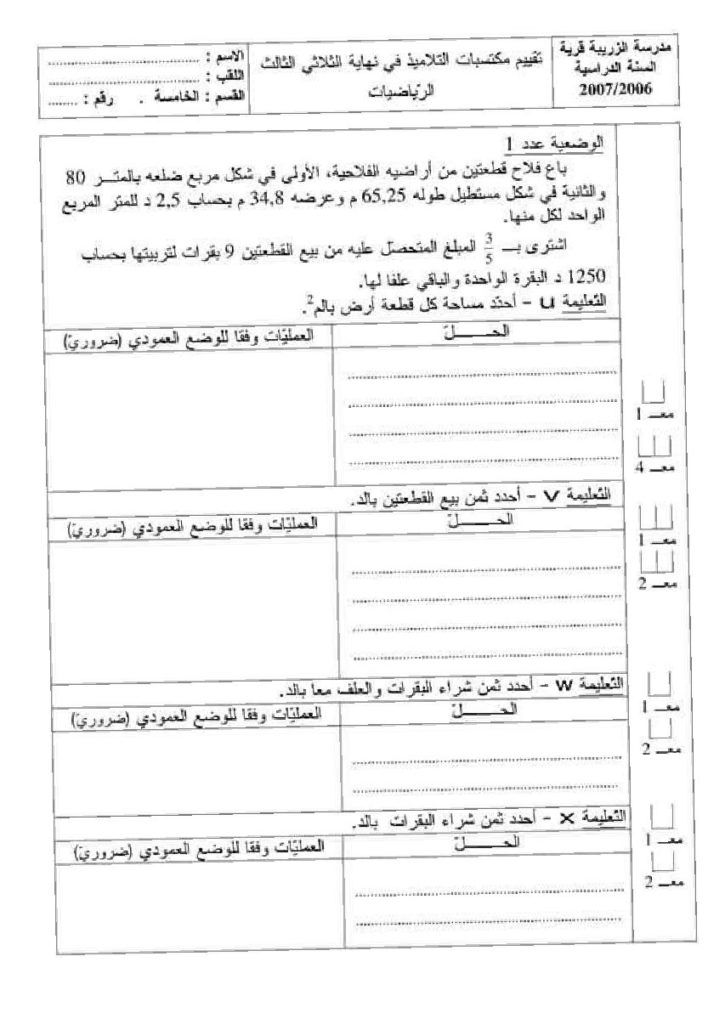 مدرسة الزريبة قرية
السنة الدراسية
2007/2006
تقييم مكتسبات التلاميذ في نهاية الثلاثي الثالث
الرّياضيات
الاسم : ....................................
اللقب : ....................................
القسم : الخامسة . رقم : .......
الوضعية عدد 1
باع فلاح قطعتين من أراضيه الفلاحية، الأولى في شكل مربع ضلعه بالمتـــر 80
والثانية في شكل مستطيل طوله 65,25 م وعرضه 34,8 م بحساب 2,5 د للمتر المربع
الواحد لكل منها.
اشترى بـــ 3/5 المبلغ المتحصّل عليه من بيع القطعتين 9 بقرات لتربيتها بحساب
1250 د البقرة الواحدة والباقي علفا لها.
التعليمة u – أحدّد مساحة كل قطعة أرض بالم².
الحـــــــلّ
العمليّات وفقا للوضع العمودي (ضروريّ)
معـ 1
معـ 4
التعليمة v – أحدد ثمن بيع القطعتين بالد.
الحـــــــلّ
العمليّات وفقا للوضع العمودي (ضروريّ)
معـ 1
معـ 2
التعليمة w – أحدد ثمن شراء البقرات والعلف معا بالد.
الحـــــــلّ
العمليّات وفقا للوضع العمودي (ضروريّ)
معـ 1
معـ 2
التعليمة x – أحدد ثمن شراء البقرات بالد.
الحـــــــلّ
العمليّات وفقا للوضع العمودي (ضروريّ)
معـ 1
معـ 2